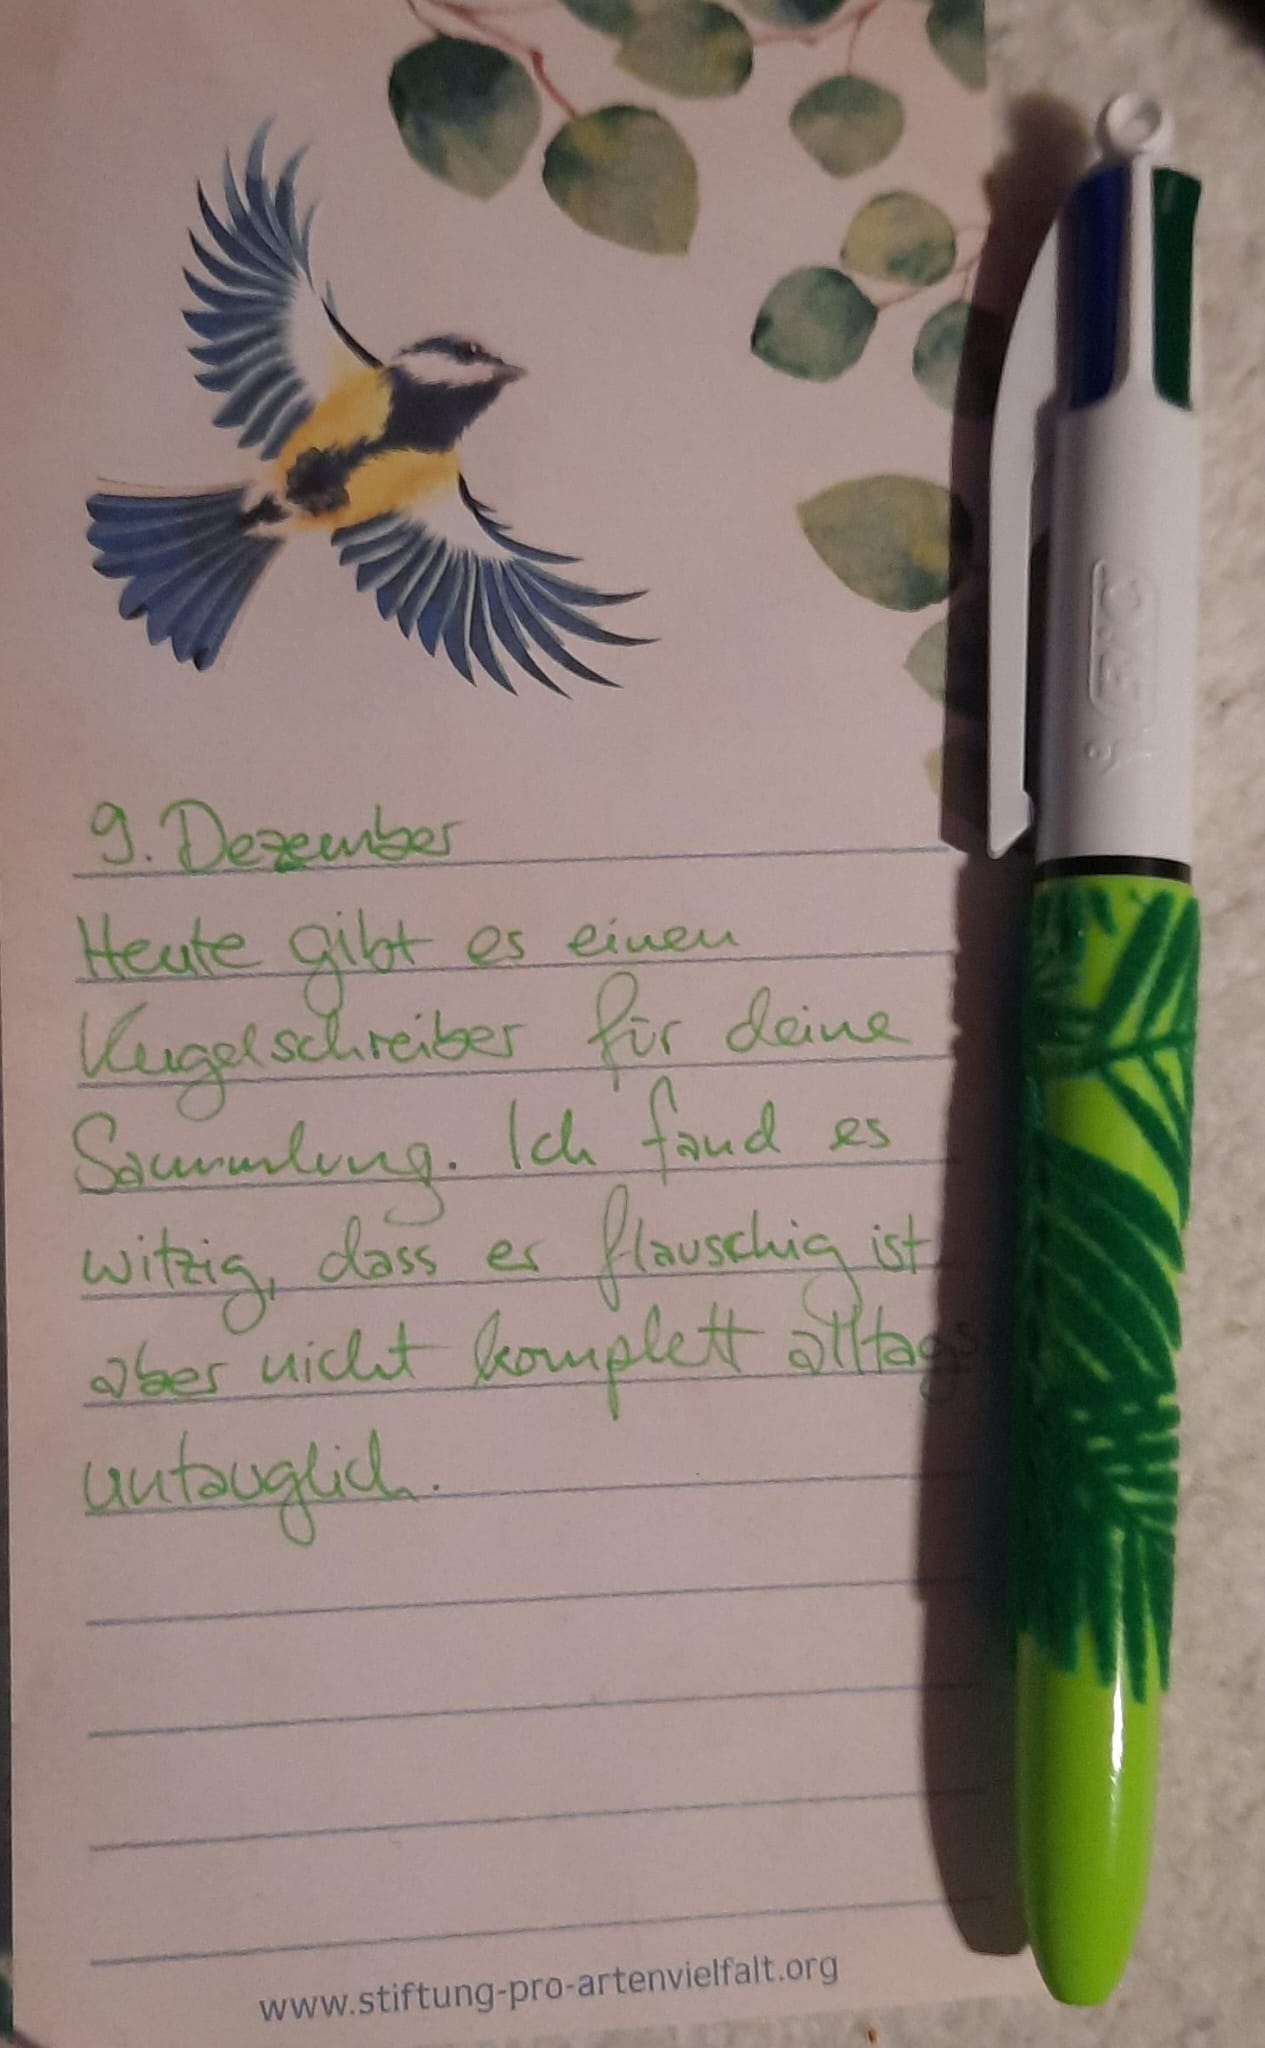 9. Dezember
Heute gibt es einen
Kugelschreiber für deine
Sammlung. Ich fand es
witzig, dass er flauschig ist
aber nicht komplett alltags
untauglich.
www.stiftung-pro-artenvielfalt.org
BIC